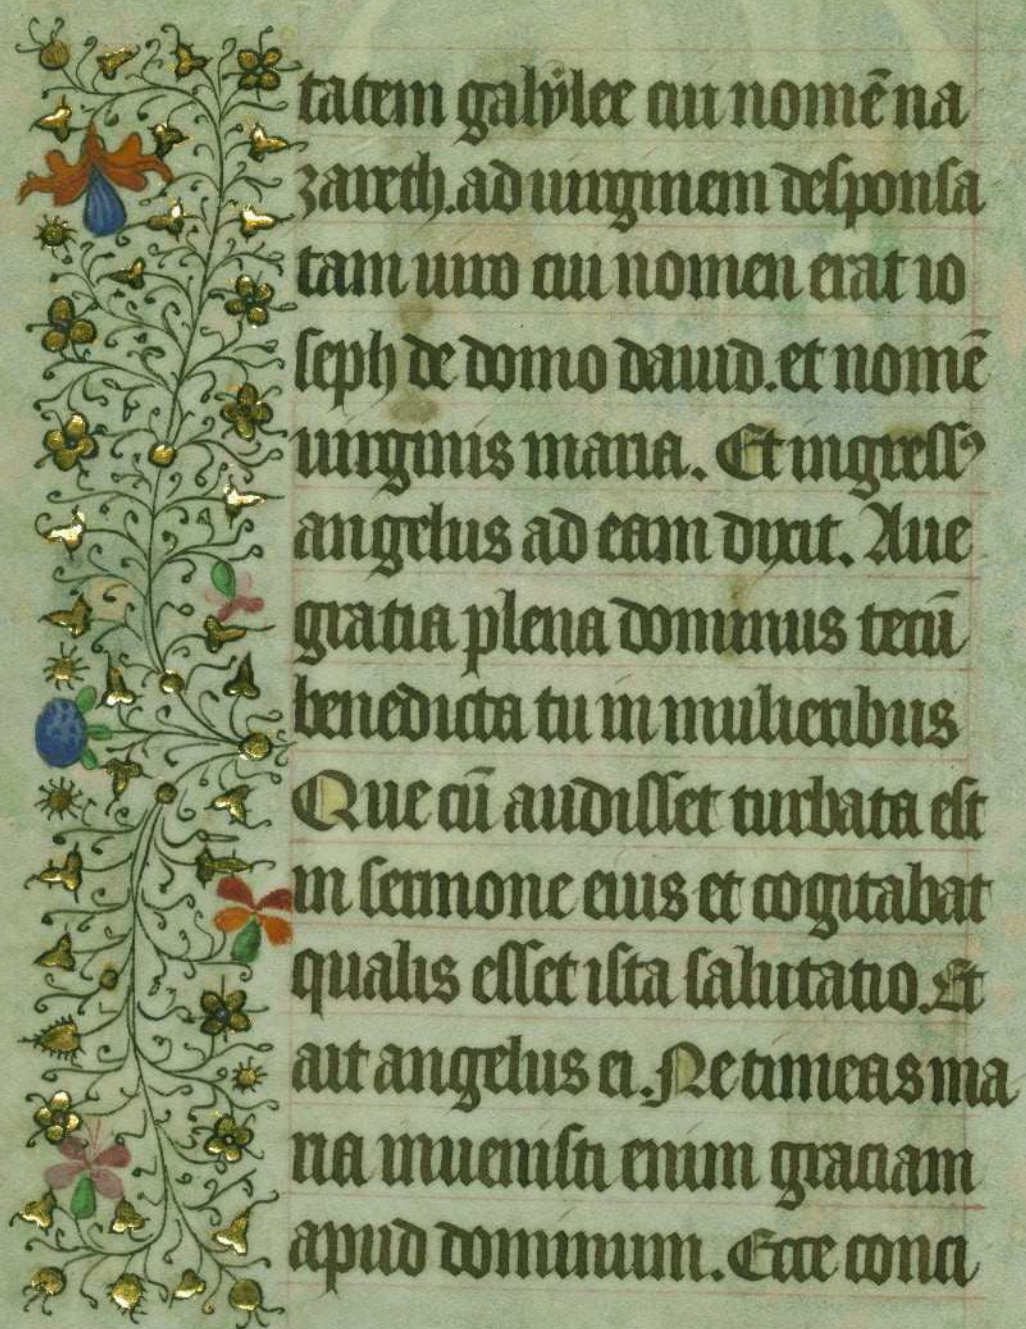 tatem galẏlee cui nomē na
zareth. ad uirginem desponsa
tam uiro cui nomen erat io
seph de domo dauid. et nomē
uirginis maria. Et ingressꝰ
angelus ad eam dixit. Aue
gratia plena dominus tecū
benedicta tu in mulieribus
Que cū audisset turbata est
in sermone eius et cogitabat
qualis esset ista salutatio. Et
ait angelus ei. Ne timeas ma
ria inuenisti enim graciam
apud dominum. Ecce conci